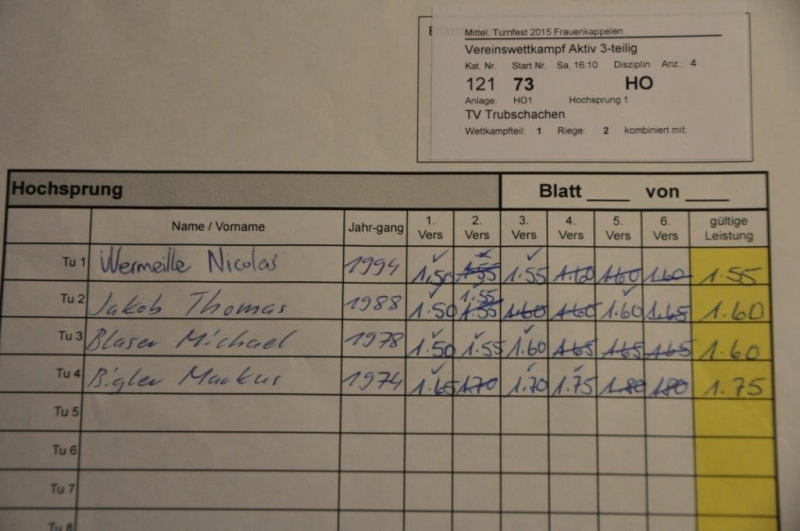 Mittel. Turnfest 2015 Frauenkappelen
Vereinswettkampf Aktiv 3-teilig
Kat. Nr. Start Nr. Sa. 16:10 Disziplin Anz.: 4
121 73 HO
Anlage: HO1 Hochsprung 1
TV Trubschachen
Wettkampfteil: 1 Riege: 2 kombiniert mit:
Hochsprung Blatt ____ von ____
Name / Vorname Jahr-gang 1. Vers 2. Vers 3. Vers 4. Vers 5. Vers 6. Vers gültige Leistung
Tu 1 Wermeille Nicolas 1994 1.50 1.55 1.55 1.60 1.60 1.60 1.55
Tu 2 Jakob Thomas 1988 1.50 1.55 1.55 1.60 1.60 1.60 1.65 1.60
Tu 3 Blaser Michael 1978 1.50 1.55 1.60 1.65 1.65 1.65 1.60
Tu 4 Bigler Markus 1974 1.65 1.70 1.70 1.75 1.80 1.80 1.75
Tu 5
Tu 6
Tu 7
Tu 8